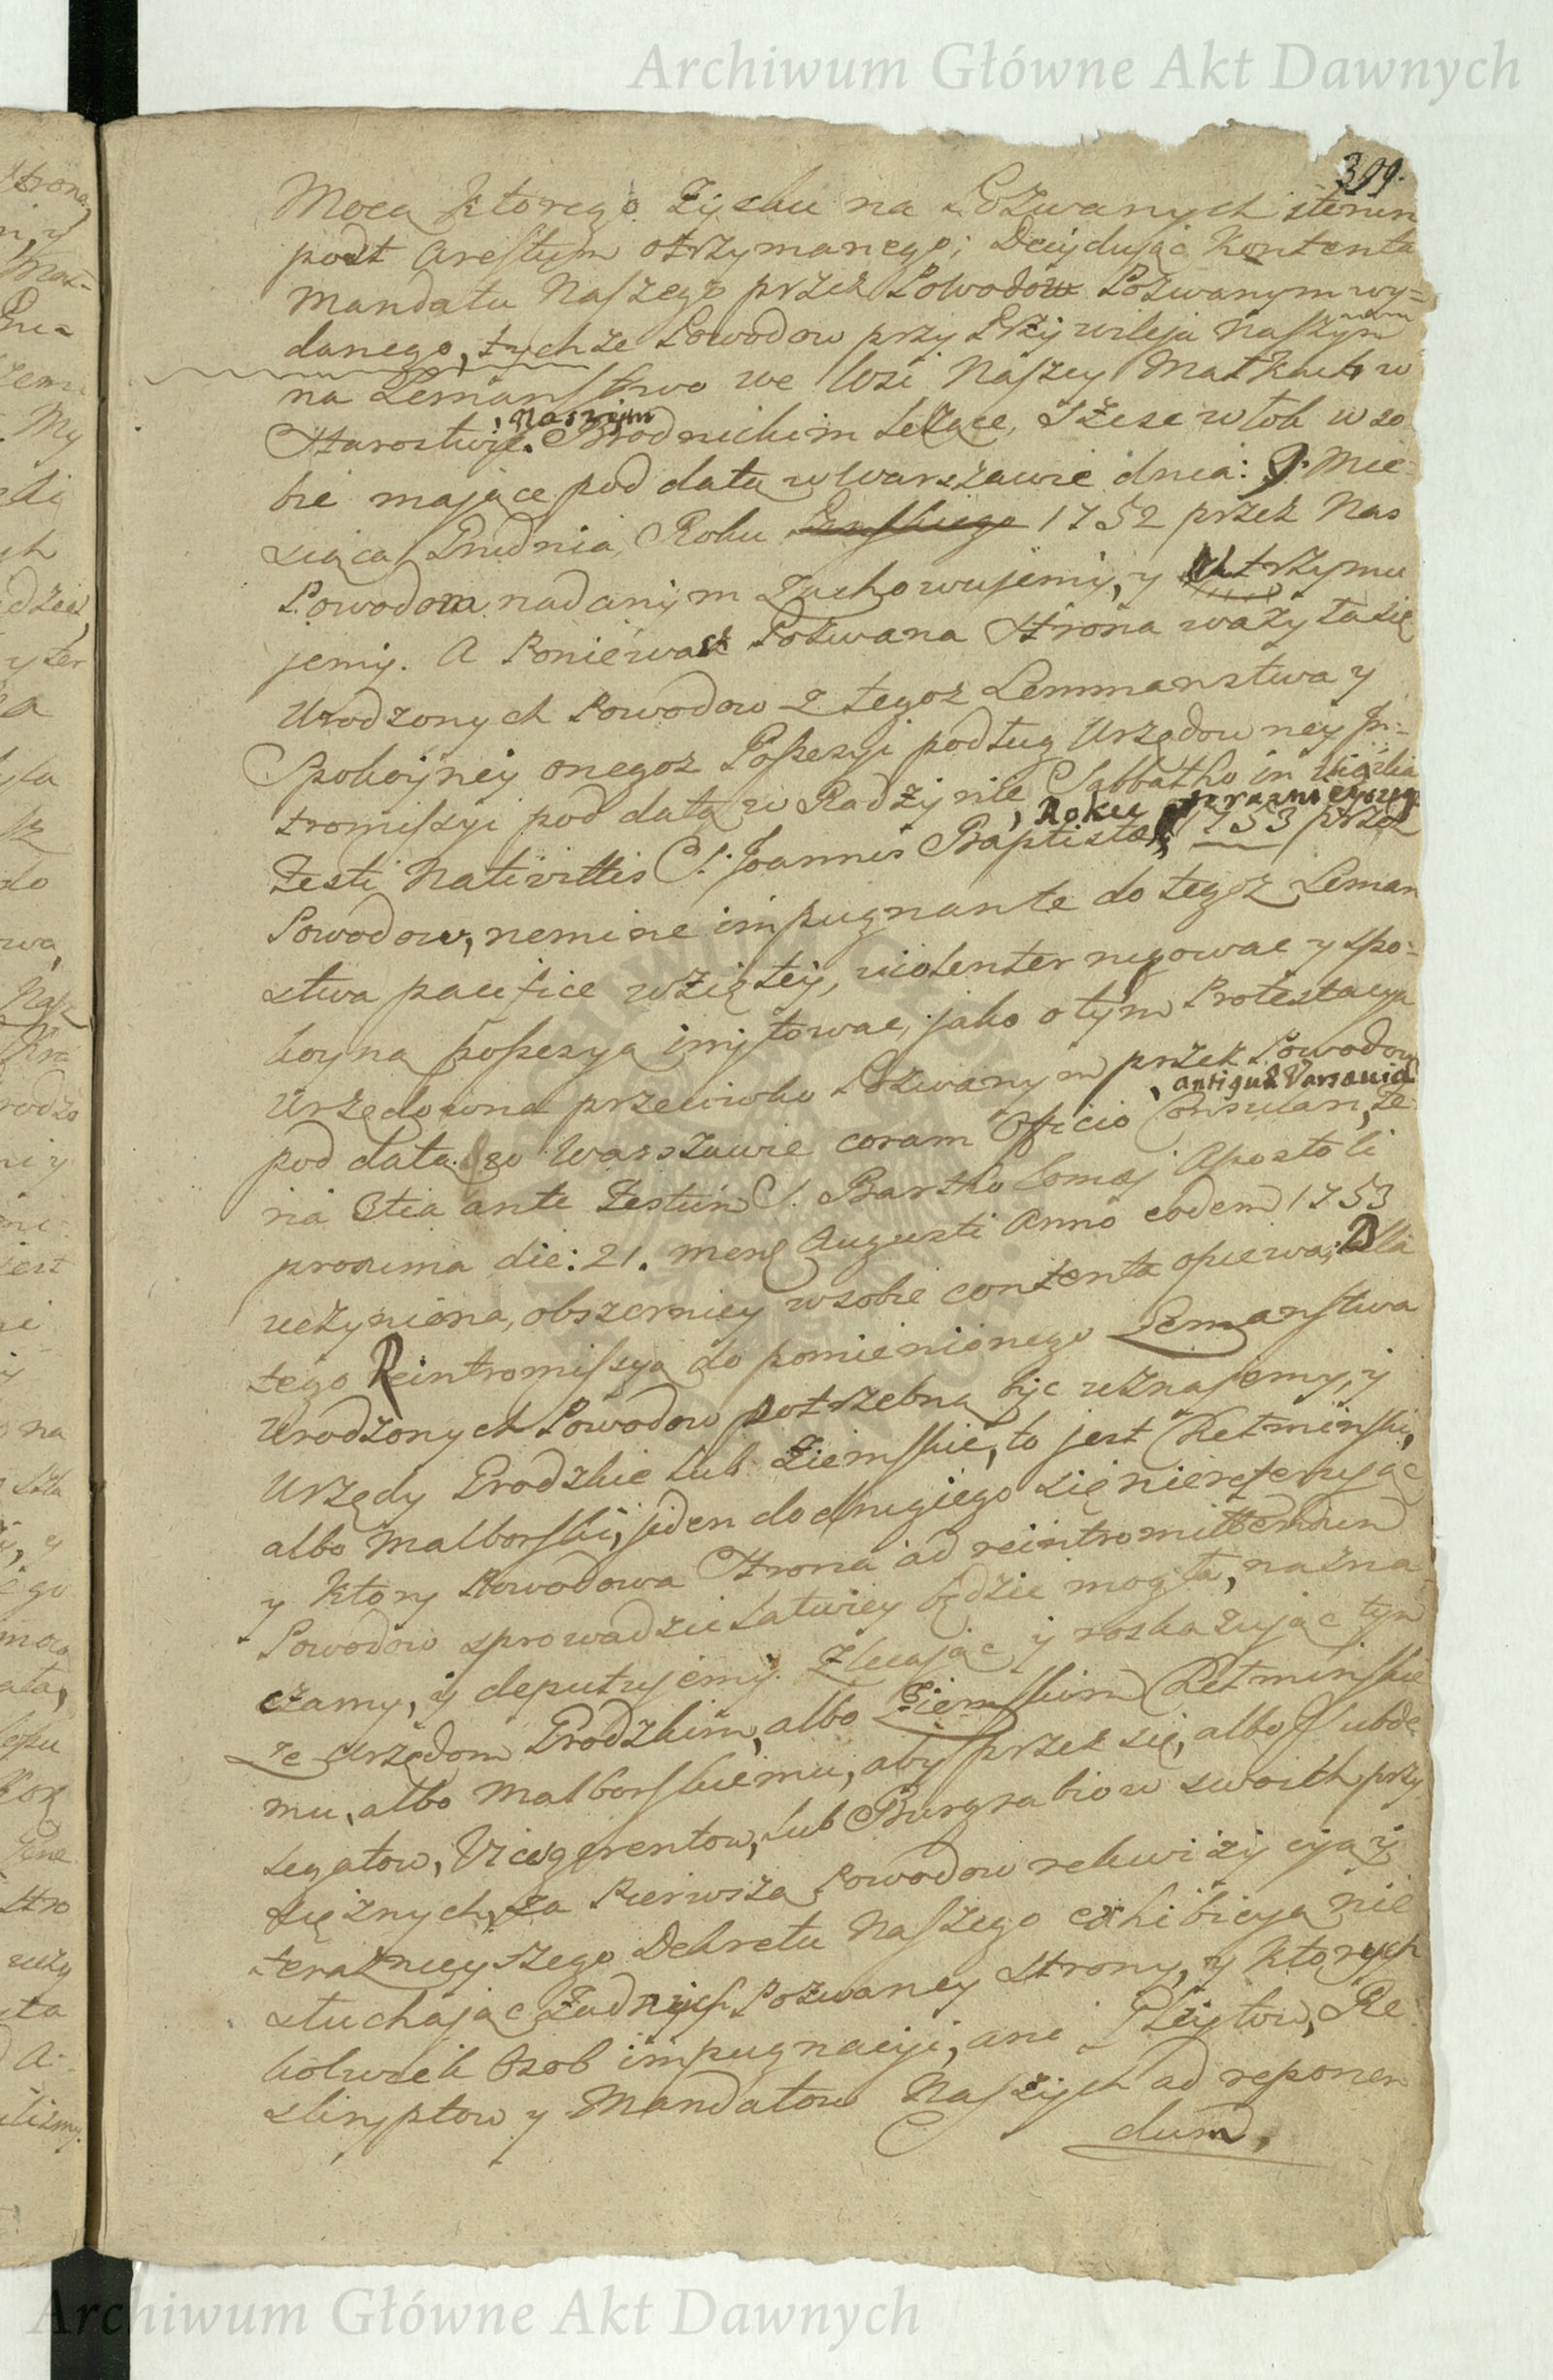 Archiwum Główne Akt Dawnych
399.
Mocą ktorego Zysku na Pozwanych iterum
post Arestum otrzymanego; Decydując Kontenta
Mandatu Naszego przez Powodow Pozwanym wy=
danego, tychże Powodow przy Przywileju Naszym
na Lemanstwo we Wsi Naszey Matkach w
Starostwie, Naszym Brodnickim leżące,
bie maiące pod datą w Warszawie dnia: 9. Mie=
siąca Grudnia Roku 1752 przez Nas
Powodom nadanym zachowujemy, y utrzymu
jemy. A Ponieważ Pozwana Strona ważyła się
Urodzonych Powodow z tegoż Lemmanstwa y
Spokoyney onegoż Possesyi podług Urzędowney In=
tromissyi pod datą w Radzynie Sabbatho in Vigilia
Festi Nativittis S. Joannis Baptistæ, Roku 1753 przez
Powodow, nemine impugnante do tegoż Leman
stwa pacifice wziętey, violenter rugowac y spo=
koyną possesyą
Urzędowna przeciwko Pozwanym przez Powodow
pod datą w Warszawie coram Officio Consulari, antiquæ Varsaviæ Fe=
ria 3tia ante Festum S. Bartholomæj Apostoli
proxima die: 21. mens Augusti Anno eodem 1753
uczyniona, obszerniey w sobie contenta opiewa; Dla
tego Reintromissyą do pomienionego Lemanstwa
Urodzonych Powodow potrzebną byc uznajemy, y
Urzędy Grodzkie lub Ziemskie, to jest Ketminski,
albo Malborski, jeden do drugiego się niereferując
y ktory Powodowa Strona ad reintromittendum
Powodow sprowadzic łatwiey będzie mogła, nazna
czamy, y deputujemy. Zlecając y roskazując tym
że Urzędom Grodzkim, albo Ziemskim Ketminskie
mu, albo Malborskiemu, aby przez się, albo Subde
legatow, Vicegerentow, lub Burgrabiow swoich przy
sięznych, za Pierwszą Powodow rekwizycyą y
teraznieyszego Dekretu Naszego exhibicyą nie
słuchając żadnych Pozwaney strony, y ktorych
kolwiek Osob impugnacyi, ani Glejtow, Re=
skryptow y Mandatow Naszych ad reponen
dum,
Archiwum Główne Akt Dawnych